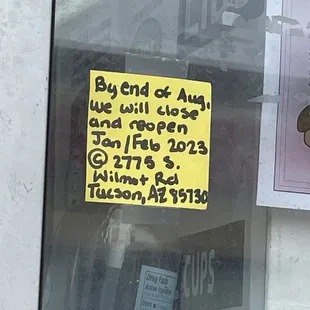 By end of Aug,
we will close
and reopen
Jan/Feb 2023
@ 2775 S.
Wilmot Rd
Tucson, AZ 85730
CUPS